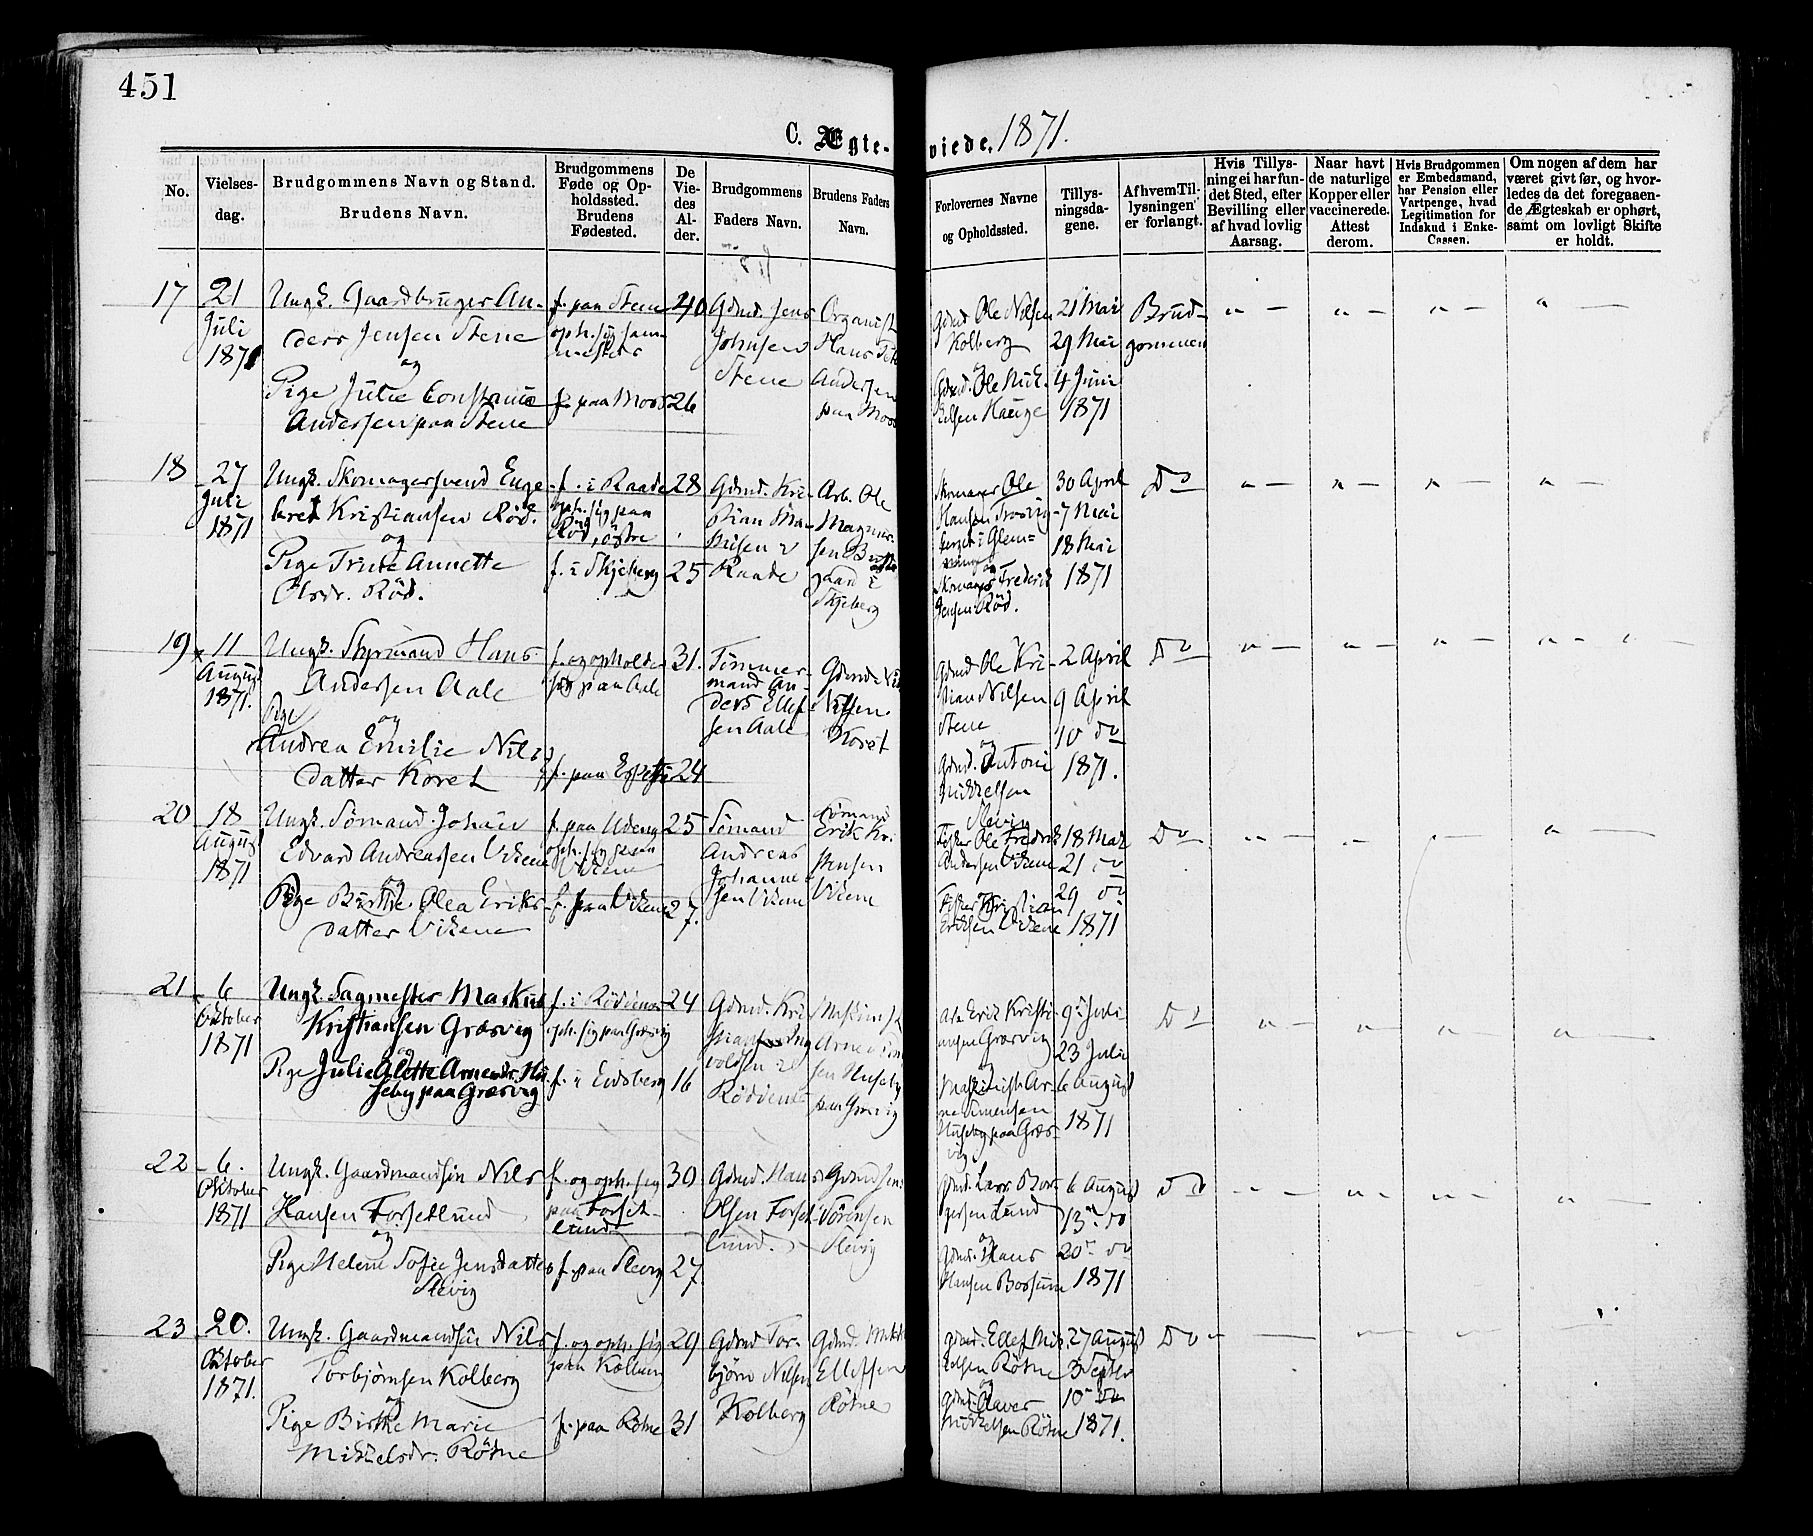 451
C. Ægte-viede, 1871.
No.
Vielses-
dag.
Brudgommens Navn og Stand.
Brudens Navn.
Brudgommens
Føde og Op-
holdssted.
Brudens
Fødested.
De
Vie-
des
Al-
der.
Brudgommens
Faders Navn.
Brudens Faders
Navn.
Forlovernes Navne
og Opholdssted.
Tillys-
ningsda-
gene.
Af hvem Til-
lysningen
er forlangt.
Hvis Tillys-
ning ei har fun-
det Sted, efter
Bevilling eller
af hvad lovlig
Aarsag.
Naar havt
de naturlige
Kopper eller
vaccinerede.
Attest
derom.
Hvis Brudgommen
er Embedsmand,
har Pension eller
Vartpenge, hvad
Legitimation for
Indskud i Enke-
Cassen.
Om nogen af dem har
været givt før, og hvor-
ledes da det foregaaen-
de Ægteskab er ophørt,
samt om lovligt Skifte
er holdt.
17
21
Juli
1871
Ungk. Gaardbruger An-
ders Jensen Stene
og
Pige Julie Constance
Andersen paa Stene
f. paa Stene
oph. sig sam-
mesteds
f. paa Moss
40
26
Gdmd. Jens
Johnsen
Stene
Organist
Hans
Andersen
paa Moss
Gdmd Ole Nilsen
Kolberg
Gdmd. Ole Mik-
kelsen Hauge
21 Mai
29 Mai
4 Juni
1871
Brud-
gommen
18
27
Juli
1871
Ungk. Skomagersvend Enge-
bret Kristiansen Röd.
og
Pige Trine Annette
Olsdr. Röd.
f. i Raade
oph. sig paa
Röd, östre
f. i Skjeberg
28
25
Gdmd. Kri-
stian
Raade
Arb. Ole
Magnus-
sen
gaard i
Skjeberg
Skomager Ole
Hansen
berget i Glem-
Skomager Frederik
Jensen Röd.
30 April
7 Mai
18 Mai
1871
Do
19
11
August
1871.
Ungk. Styrmand Hans
Andersen Aale
og
Pige
Andrea Emilie Nils-
datter Koret
f. og opholder
sig paa Aale
f. paa
31.
24
Tömmer-
mand An-
ders Ellef-
sen Aale
Gdmd
Nilsen
Koret
Gdmd Ole Kri-
stian Nilsen
Stene
og
Gdmd. Antoni
Mikkelsen
Slevig
2 April
9 April
10 do
1871.
Do
20
18
August
1871
Ungk. Sömand Johan
Edvard Andreassen Vikene
og
Pige Birthe Olea Eriks-
datter Vikene
f. paa Udeng
oph. sig paa
Vikene
f. paa Vikene
25
27.
Sömand
Andreas
Johanne-
sen Vikene
Sömand
Erik Kri-
stensen
Vikene
Fisker Ole Fredrik
Andersen Vikene
og
Fisker Kristian
Eriksen Vikene
18 Mai
21 do
29 do
1871
Do
21
6
Oktober
1871
Ungk. Sagmester Markus
Kristiansen Græsvig
og
Pige Julie Alette Arnesdr. Hu-
seby paa Græsvig
f. i Rödenes
oph. sig paa Græsvig
f. i Eidsberg
24
16
Gdmd. Kri-
stian
voldsen i
Rödenes
Maskinist
Arne Simen-
sen Huseby
paa Græsvig
Arb. Erik Kristi-
ansen Græsvig
Maskinist Ar-
ne Simensen
Huseby paa Græs-
vig
9 Juli
23 Juli
6 August
1871
Do
22
6.
Oktober
1871
Ungk. Gaardmandsön Nils
Hansen Forsetlund
og
Pige Helene Sofie Jensdatter
Slevig
f. og oph. sig
paa Forset-
lund
f. paa Slevig
30
27.
Gdmd. Hans
Olsen Forset-
lund.
Gdmd Jens
Sörensen
Slevig
Gdmd. Lars Bör-
gersen Lund
og
Gdmd. Hans
Hansen Bossum
6 August
13 do
20 do
1871
Do
23
20.
Oktober
1871.
Ungk. Gaardmandsön Nils
Torbjörnsen Kolberg
og
Pige Birthe Marie
Mikkelsdr. Rötne
f. og oph. sig
paa Kolberg
f. paa Rötne
29
31
Gdmd Tor-
björn Nilsen
Kolberg
Gdmd. Mikkel
Ellefsen
Rötne
Gdmd. Ellef Mik-
kelsen Rötne
og
Gdmd. Haver
Mikkelsen Rötne
27 August
3 Septbr
10 do
1871.
Do